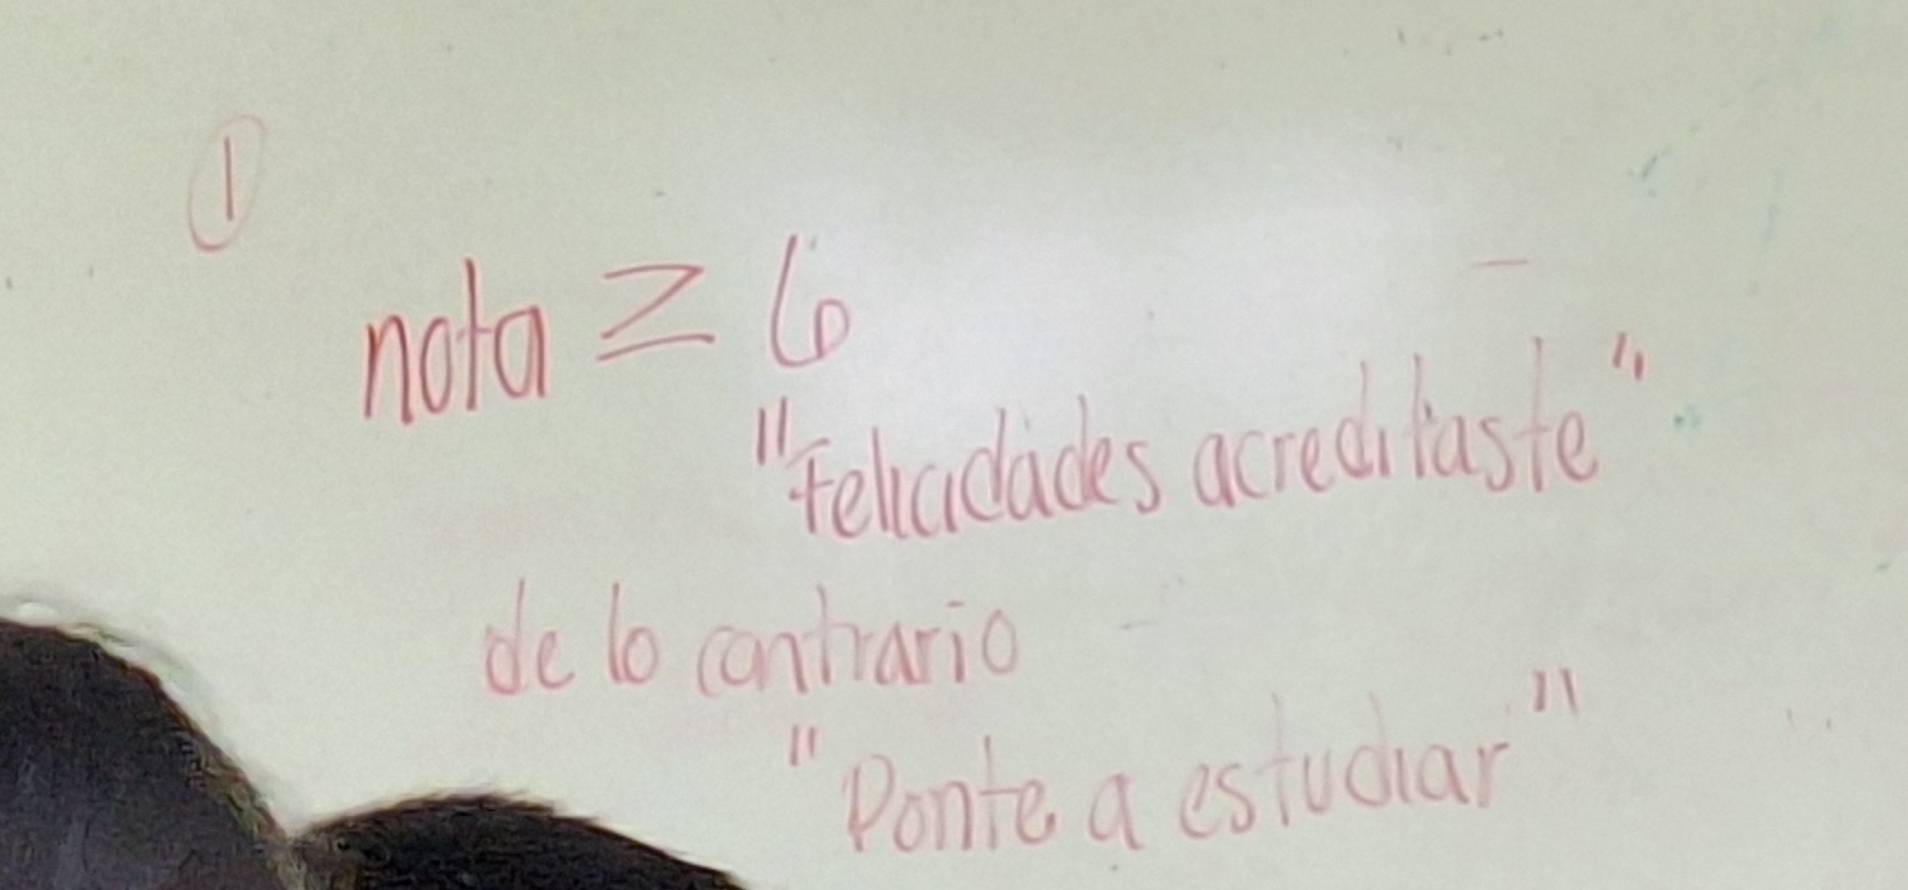 ①
nota ≥ 6
"Felicidades acreditaste"
de lo contrario
"Ponte a estudiar"